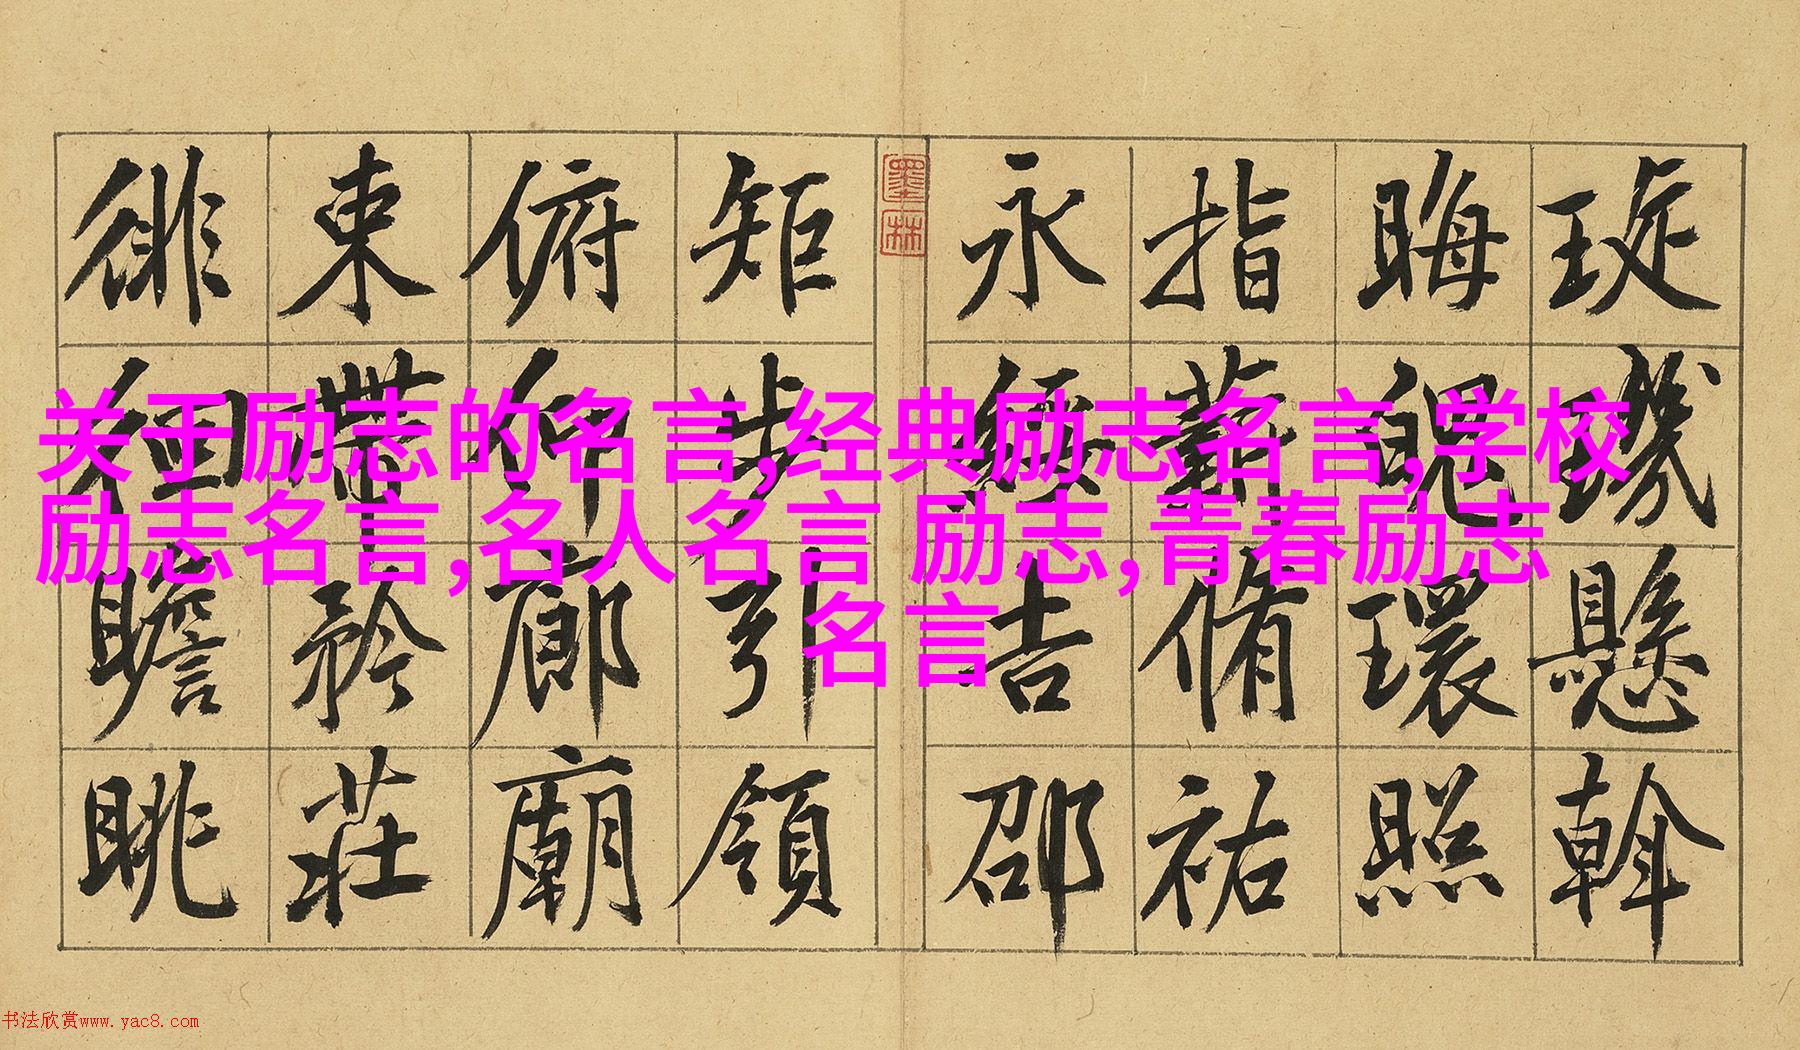 琁璣懸斡
晦魄環照
指薪脩祐
永綏吉邵
墨林
矩步引領
俯仰廊廟
束帶矜莊
徘徊瞻眺
关于励志的名言,经典励志名言,学校
励志名言,名人名言 励志,青春励志
名言
书法欣赏www.yac8.com